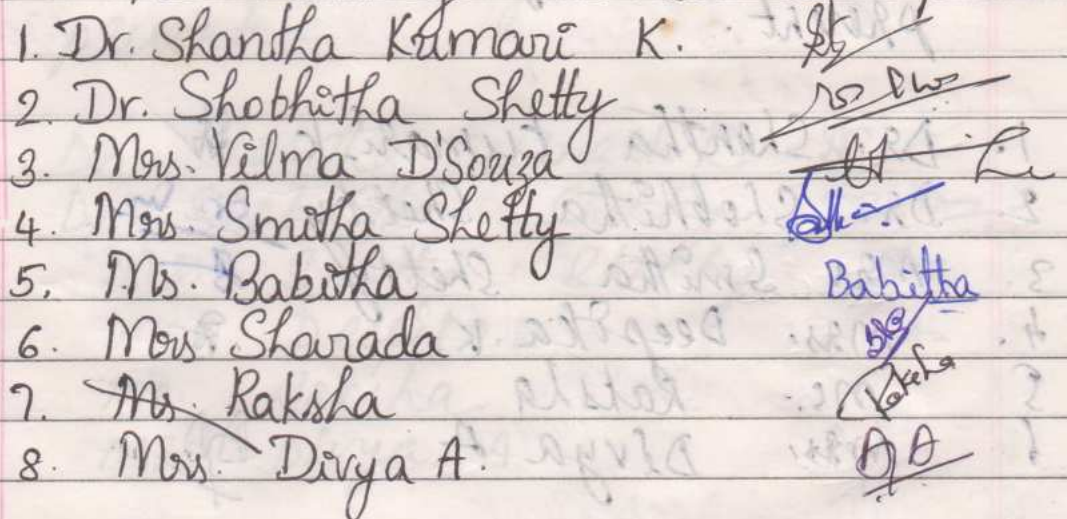 1. Dr. Shantha Kumari K.
2. Dr. Shobhitha Shetty
3. Mrs. Vilma D'Souza
4. Mrs. Smitha Shetty
5. Ms. Babitha Babitha
6. Mrs. Sharada.
7. Ms. Raksha Raksha
8. Mrs. Divya A.